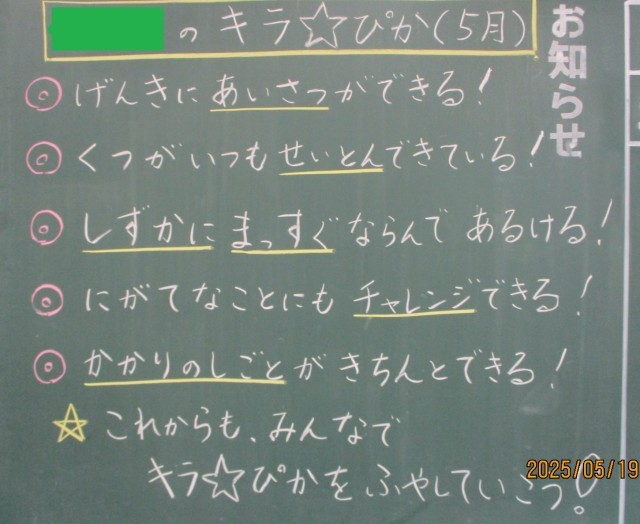 のキラ☆ぴか(5月)
お知らせ
◎げんきにあいさつができる!
◎くつがいつもせいとんできている!
◎しずかにまっすぐならんであるける!
◎にがてなことにもチャレンジできる!
◎かかりのしごとがきちんとできる!
☆これからも、みんなで
キラ☆ぴかをふやしていこう!
2025/05/19